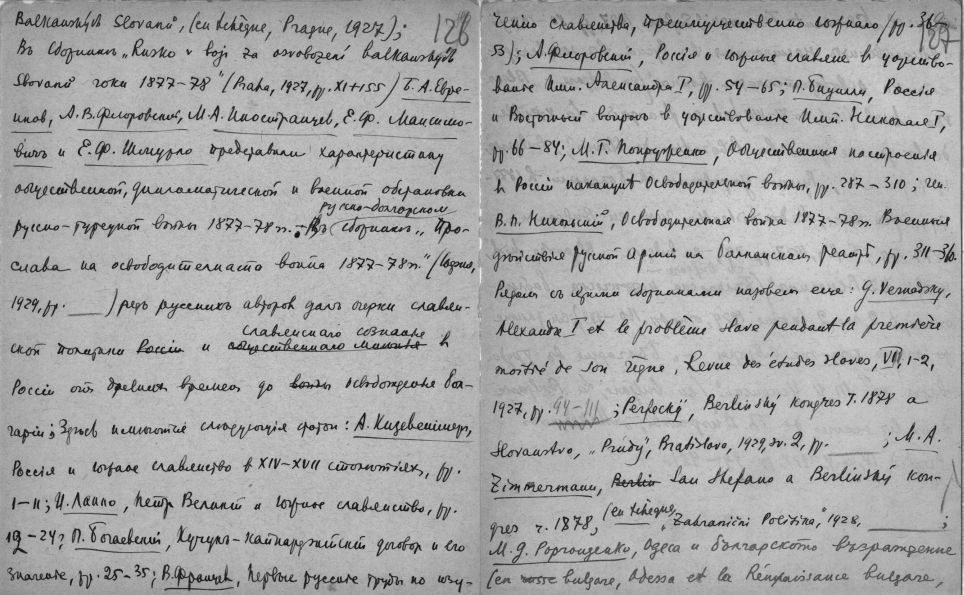 Balkanských Slovanů", (en tchèque, Prague, 1927);
126
Въ сборникѣ „Rusko v boji za osvobození balkanských
Slovanů roku 1877-78" (Praha, 1927, pp. XI+155) Б. А. Евре-
иновъ, А. В. Флоровскій, М. А. Иностранцевъ, Е. Ф. Максимо-
вичъ и Е. Ф. Шмурло представили характеристику
общественной, дипломатической и военной обстановки
русско-турецкой войны 1877-78 гг. – Въ русско-болгарскомъ сборникѣ „Про-
слава на освободителната война 1877-78 г." (Софія,
1929, pp. ___) рядъ русскихъ авторовъ далъ очерки славян-
ской политики Россіи и общественнаго мнѣнія славянскаго сознанія в
Россіи отъ древнихъ временъ до войны освобожденія Бол-
гаріи; Здѣсь имѣются слѣдующія статьи: А. Кизеветтеръ,
Россія и южное славянство в XIV–XVII столѣтіяхъ, pp.
1–11; И. Лаппо, Петръ Великій и южное славянство, pp.
12–24; П. Богаевскій, Кучукъ-Кайнарджійскій договор и его
значеніе, pp. 25–35; В. Францевъ, Первые русскіе труды по изу-
ченію славянства, преимущественно южнаго (pp. 36-
127
53); А. Флоровскій, Россія и южные славяне в царство-
ваніе Имп. Александра I, pp. 54–65; П. Бицилли, Россія
и Восточный вопросъ в царствованіе Имп. Николая I,
pp. 66–84; М. Г. Попруженко, Общественныя настроенія
в Россіи наканунѣ Освободительной войны, pp. 287–310; ген.
В. П. Никольскій, Освободительная война 1877-78 гг. Военныя
дѣйствія Русской Арміи на Балканскомъ театрѣ, pp. 311–
Рядомъ съ этими сборниками назовемъ еще: G. Vernadsky,
Alexandre I et le problème slave pendant la première
moitié de son règne, Revue des études slaves, VII, 1-2,
1927, pp. 94–111; Perfeckij, Berlinský kongres r. 1878 a
Slovanstvo, „Prúdy", Bratislava, 1929, sv. 2, pp. ___; М. А.
Zimmermann, Berlin San Stefano a Berlinský kon-
gres r. 1878, (en tchèque, „Zahraniční Politika," 1928, ___;
М. Д. Рорющенко, Одеса и българското възраждение
(en russe bulgare, Odessa et la Renaissance bulgare,